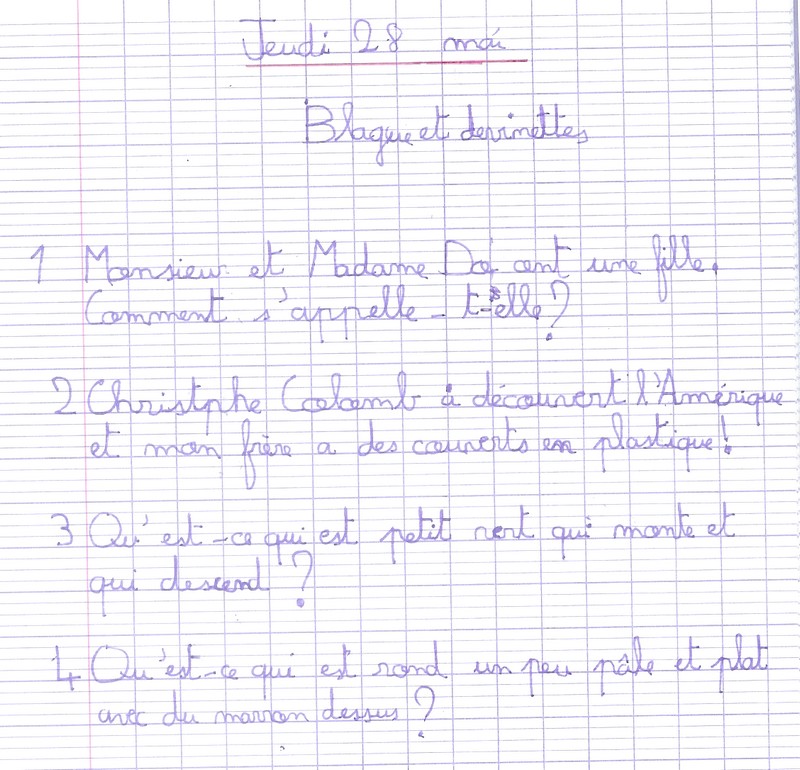 Jeudi 28 mai
Blague et devinettes
1 Monsieur et Madame Dof ont une fille.
Comment s'appelle-t-elle ?
2 Christphe Colomb à découvert l'Amérique
et mon frère a des couverts en plastique !
3 Qu'est-ce qui est petit vert qui monte et
qui descend ?
4 Qu'est-ce qui est rond un peu pâle et plat
avec du marron dessus ?